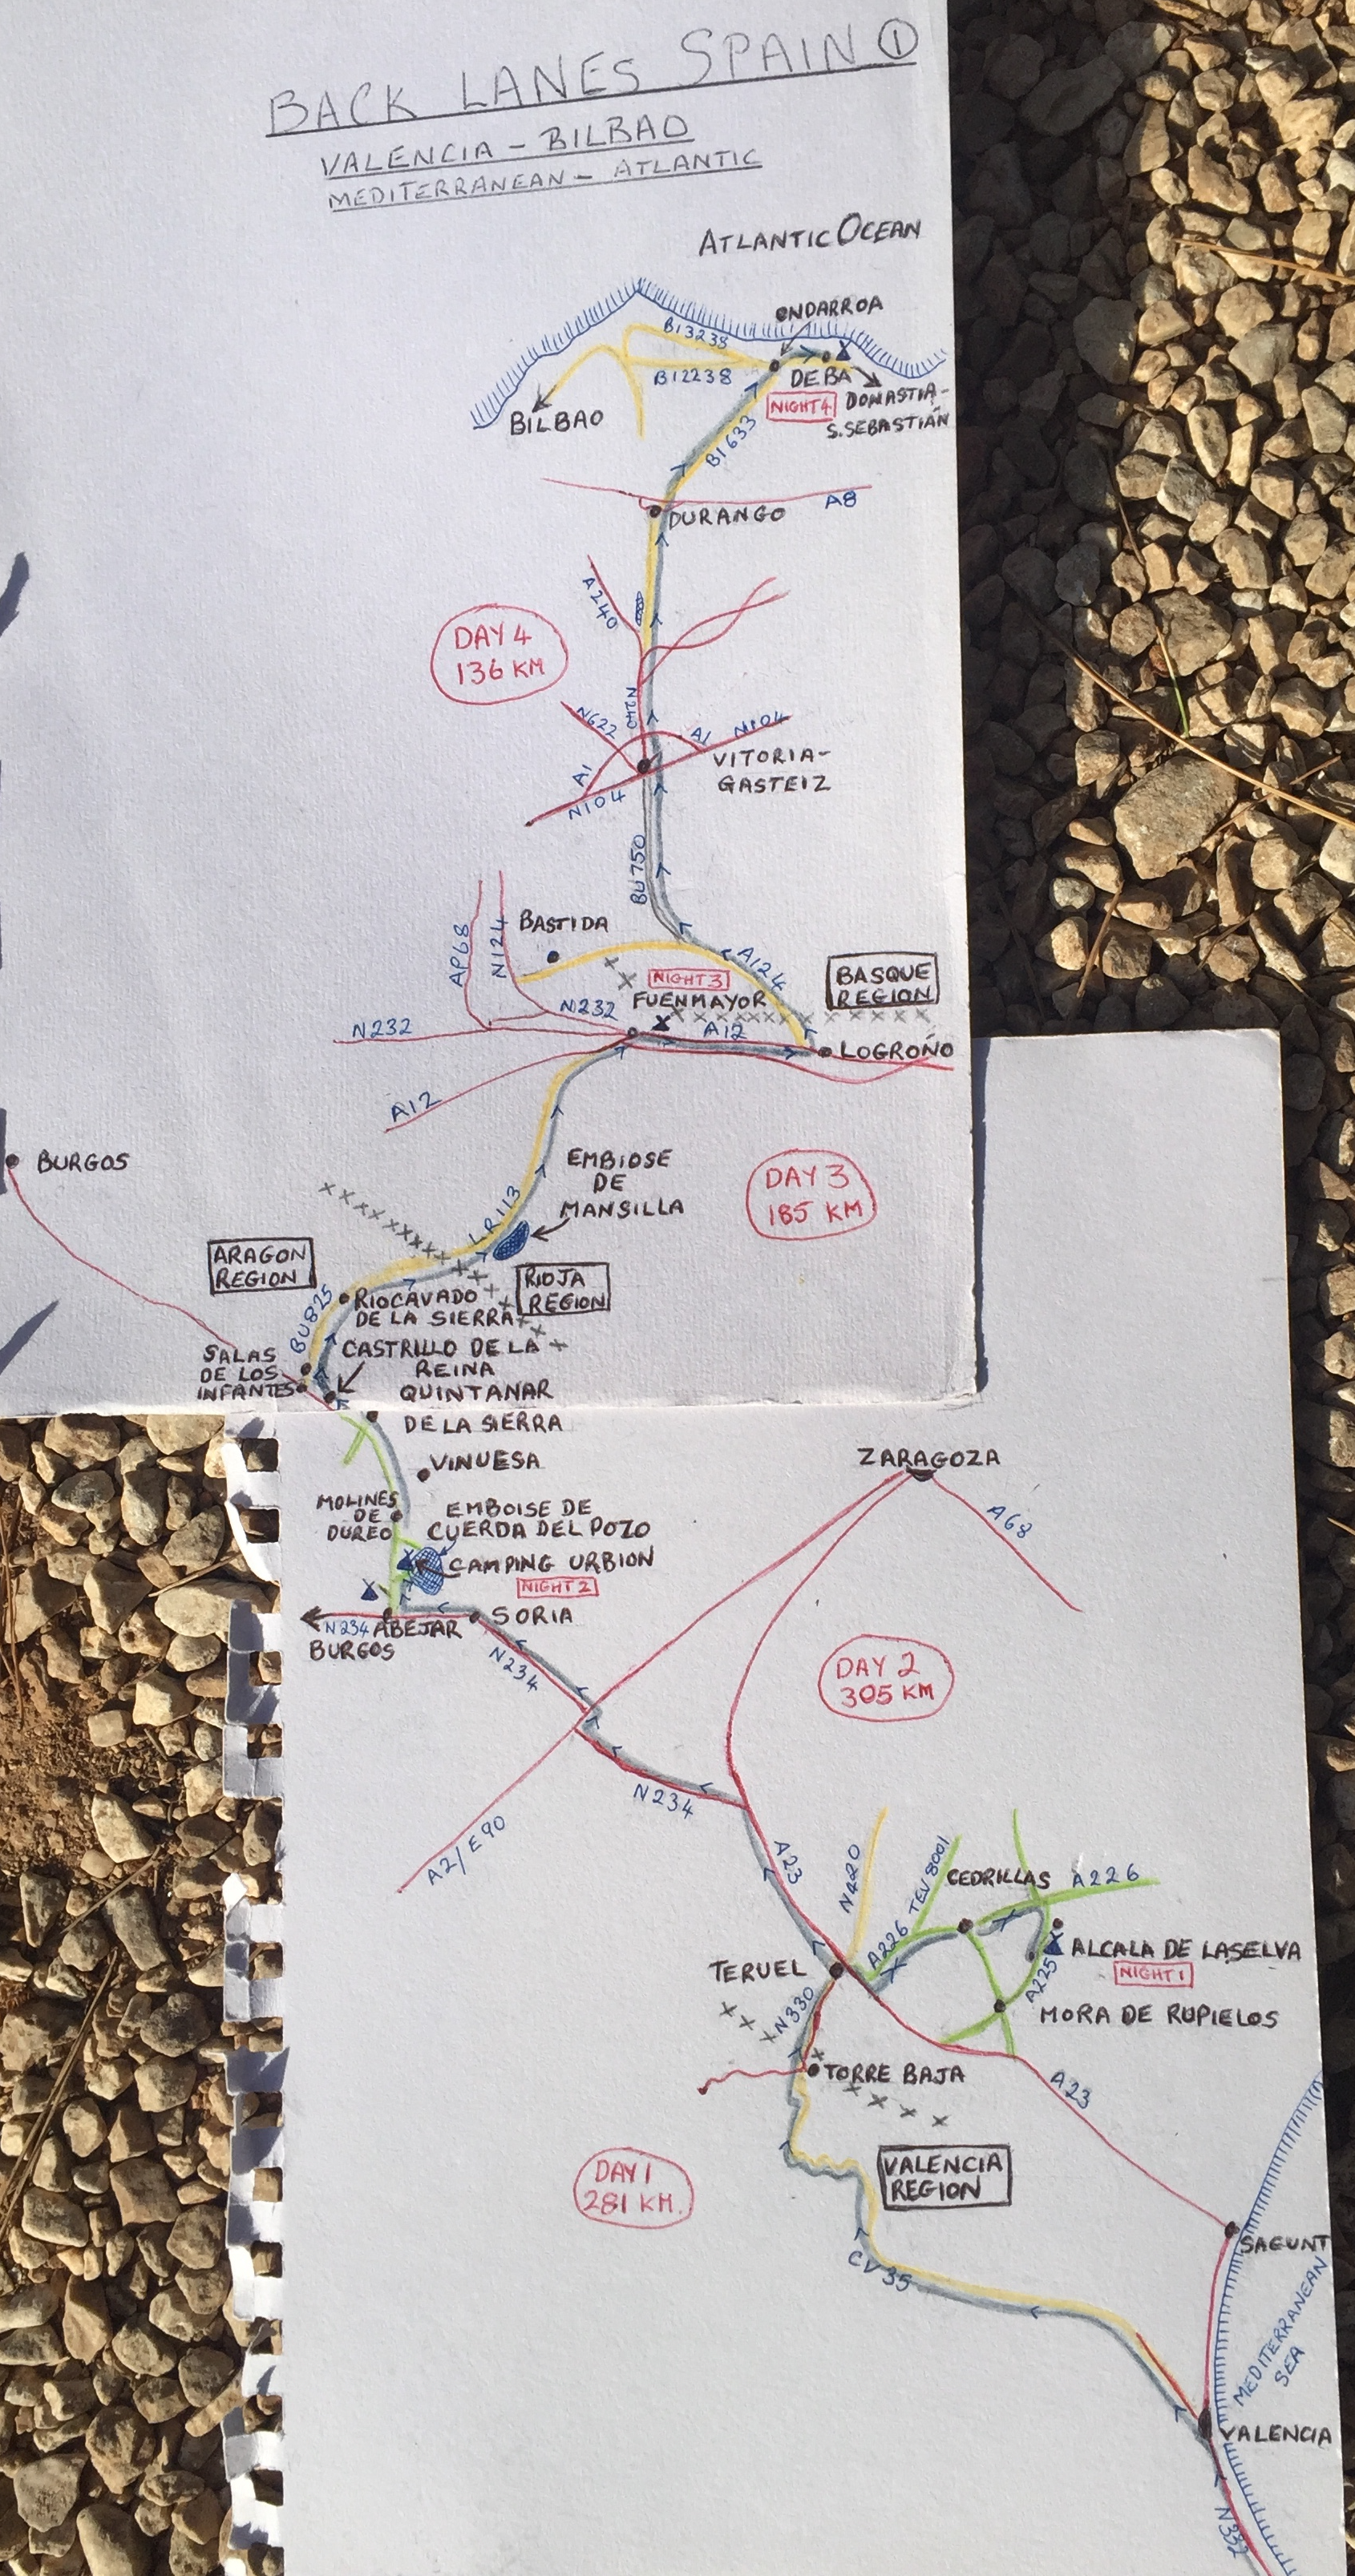 BACK LANES SPAIN ①
VALENCIA - BILBAO
MEDITERRANEAN - ATLANTIC
ATLANTIC OCEAN
ONDARROA
BI3238
BI2238
DEBA
NIGHT 4
DONASTIA-
S.SEBASTIÁN
BILBAO
BI633
A8
DURANGO
A240
DAY 4
136 KM
N240
N622
A1
N104
VITORIA-
GASTEIZ
A1
N104
BU750
BASTIDA
AP68
N124
A124
BASQUE
REGION
NIGHT 3
FUENMAYOR
N232
N232
A12
LOGROÑO
A12
BURGOS
EMBIOSE
DE
MANSILLA
DAY 3
185 KM
LR113
ARAGON
REGION
RIOJA
REGION
BU825
RIOCAVADO
DE LA SIERRA
SALAS
DE LOS
INFANTES
CASTRILLO DE LA
REINA
QUINTANAR
DE LA SIERRA
VINUESA
ZARAGOZA
A68
MOLINES
DE
DUREO
EMBOISE DE
CUERDA DEL POZO
CAMPING URBION
NIGHT 2
N234
ABEJAR
SORIA
BURGOS
N234
DAY 2
305 KM
N234
A2/E90
A23
N420
TEV8001
CEDRILLAS
A226
A226
TERUEL
ALCALA DE LASELVA
NIGHT 1
A225
N330
MORA DE RUPIELOS
TORRE BAJA
A23
VALENCIA
REGION
DAY 1
281 KM.
SAGUNT
CV35
MEDITERRANEAN
SEA
VALENCIA
N332